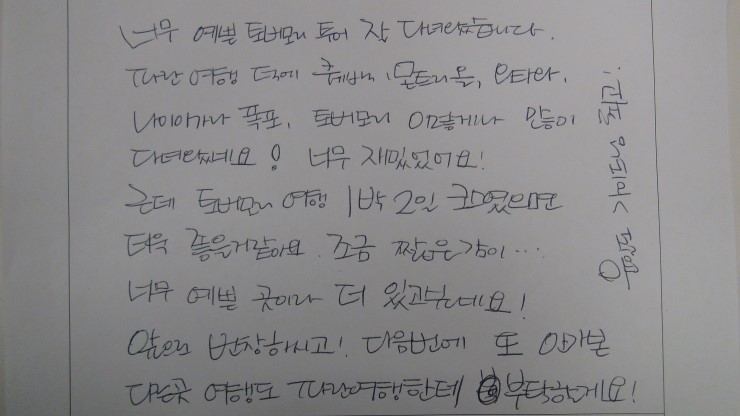 너무 예쁜 토버모리 투어 잘 다녀왔습니다.
파란 여행 덕에 퀘벡, 몬트리올, 오타와,
나이아가라 폭포, 토버모리 이렇게나 많이
다녀왔네요! 너무 재밌었어요!
근데 토버모리 여행 1박 2일 코스였으면
더욱 좋을거같아요. 조금 짧은감이...
너무 예쁜 곳이라 더 있고싶네요!
앞으로 번창하시고! 다음번에 또 안가본
다른곳 여행도 파란여행한테 부탁할게요!
최고!